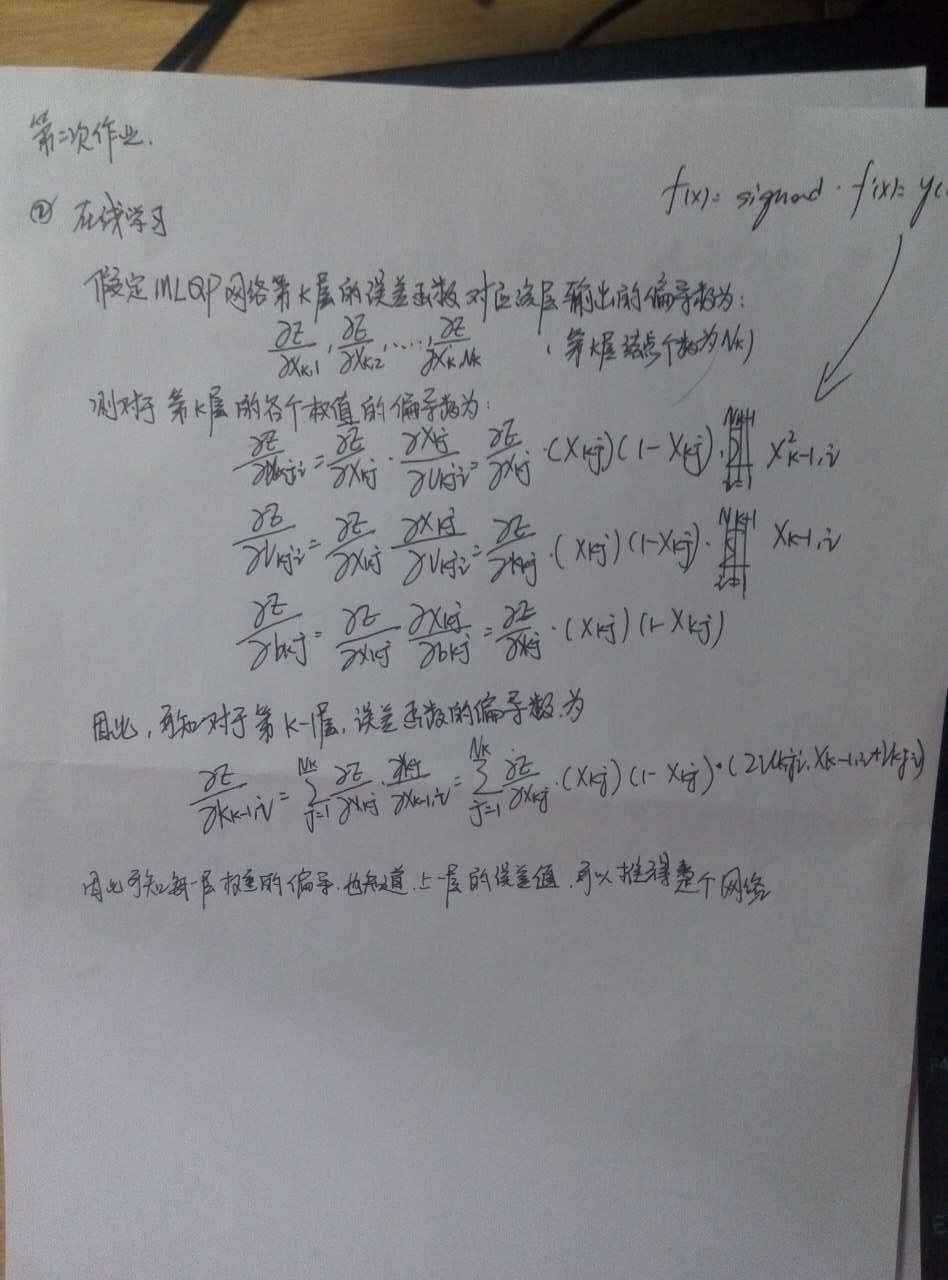 第二次作业.
② 在线学习
f(x)= sigmod · f'(x)= y(
假定MLQP网络第k层的误差函数对应该层输出的偏导数为:
∂E/∂x_{k,1}, ∂E/∂x_{k,2}, ..., ∂E/∂x_{k,Nk} (第k层结点个数为Nk)
则对于第k层的各个权值的偏导数为:
∂E/∂u_{kji} = ∂E/∂x_{kj} · ∂x_{kj}/∂u_{kji} = ∂E/∂x_{kj} · (x_{kj})(1-x_{kj}) · x²_{k-1,i}
∂E/∂v_{kji} = ∂E/∂x_{kj} ∂x_{kj}/∂v_{kji} = ∂E/∂x_{kj} · (x_{kj})(1-x_{kj}) · x_{k-1,i}
∂E/∂b_{kj} = ∂E/∂x_{kj} ∂x_{kj}/∂b_{kj} = ∂E/∂x_{kj} · (x_{kj})(1-x_{kj})
因此,可知对于第k-1层,误差函数的偏导数为
∂E/∂x_{k-1,i} = Σ_{j=1}^{Nk} ∂E/∂x_{kj} · ∂x_{kj}/∂x_{k-1,i} = Σ_{j=1}^{Nk} ∂E/∂x_{kj} · (x_{kj})(1-x_{kj}) · (2u_{kji}·x_{k-1,i}+v_{kji})
由此可知每一层权重的偏导.也知道上一层的误差值.可以推得整个网络